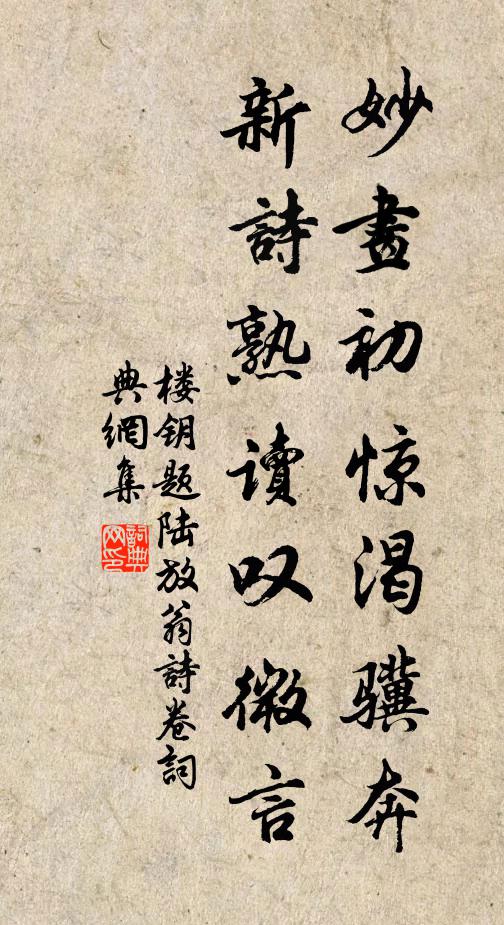 妙畫初惊渴骥奔
新詩熟读叹微言
楼钥题陆放翁詩卷詞
典網集
詞典网印